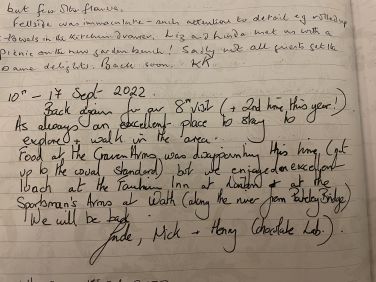 but few slow flowers.
Fellside was immaculate - such attention to detail e.g rolled up
towels in the kitchen drawer. Liz and Linda met us with a
picnic on the new garden bench! Sadly not all guests get the
same delights. Back soon. KR
10th - 17 Sept 2022.
Back again for our 8th visit (+ 2nd time this year!)
As always an excellent place to stay to
explore + walk in the area.
Food at the Craven Arms was disappointing this time, (not
up to the usual standard) but we enjoyed an excellent
lunch at the Fountain Inn at Linton + at the
Sportsman's Arms at Wath (along the river from Pateley Bridge)
We will be back.
Jude, Mick + Henry (chocolate Lab.)